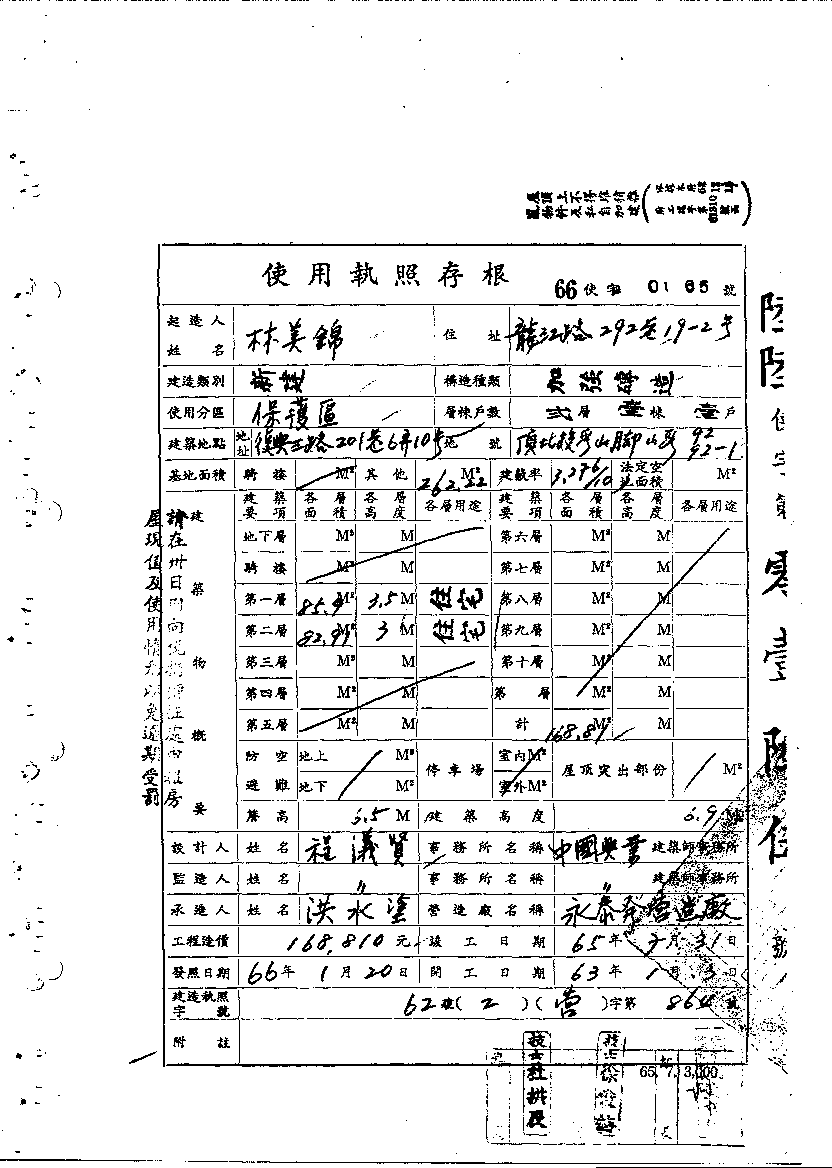 屋頂上不得堆積雜
物件及私自加建
使用執照存根 66使字 0165 號
起造人姓名 林美錦 住址 龍江路292巷19-2号
建造類別 新建 構造種類 加強磚造
使用分區 保護區 層棟戶數 弍層 壹棟 壹戶
建築地點 地址 復興三路201巷6弄10号 地號 頂北投段山腳小段 92 92-1
基地面積 騎樓 M² 其他 262.22 M² 建蔽率 3.276/10 法定空地面積 M²
建築物概要 建築要項 各層面積 各層高度 各層用途 建築要項 各層面積 各層高度 各層用途
地下層 M² M 第六層 M² M
騎樓 M² M 第七層 M² M
第一層 85.9 M² 3.5 M 住宅 第八層 M² M
第二層 82.97 M² 3 M 住宅 第九層 M² M
第三層 M² M 第十層 M² M
第四層 M² M 第 層 M² M
第五層 M² M 計 168.87 M² M
防空避難 地上 M² 停車場 室內M² 屋頂突出部份 M²
地下 M² 室外M²
簷高 6.5 M 建築高度 6.9 M
設計人 姓名 程儀賢 事務所名稱 中國興業 建築師事務所
監造人 姓名 〃 事務所名稱 〃 建築師事務所
承造人 姓名 洪水塗 營造廠名稱 永泰發營造廠
工程造價 168,810元 竣工日期 65年7月31日
發照日期 66年1月20日 開工日期 63年1月3日
建造執照字號 62建(2)(營)字第864號
附註
65. 7. 3,000
請在卅日內向稅捐稽征處申報房
屋現值及使用情形以免逾期受罰
陸陸使字第零壹陸伍號